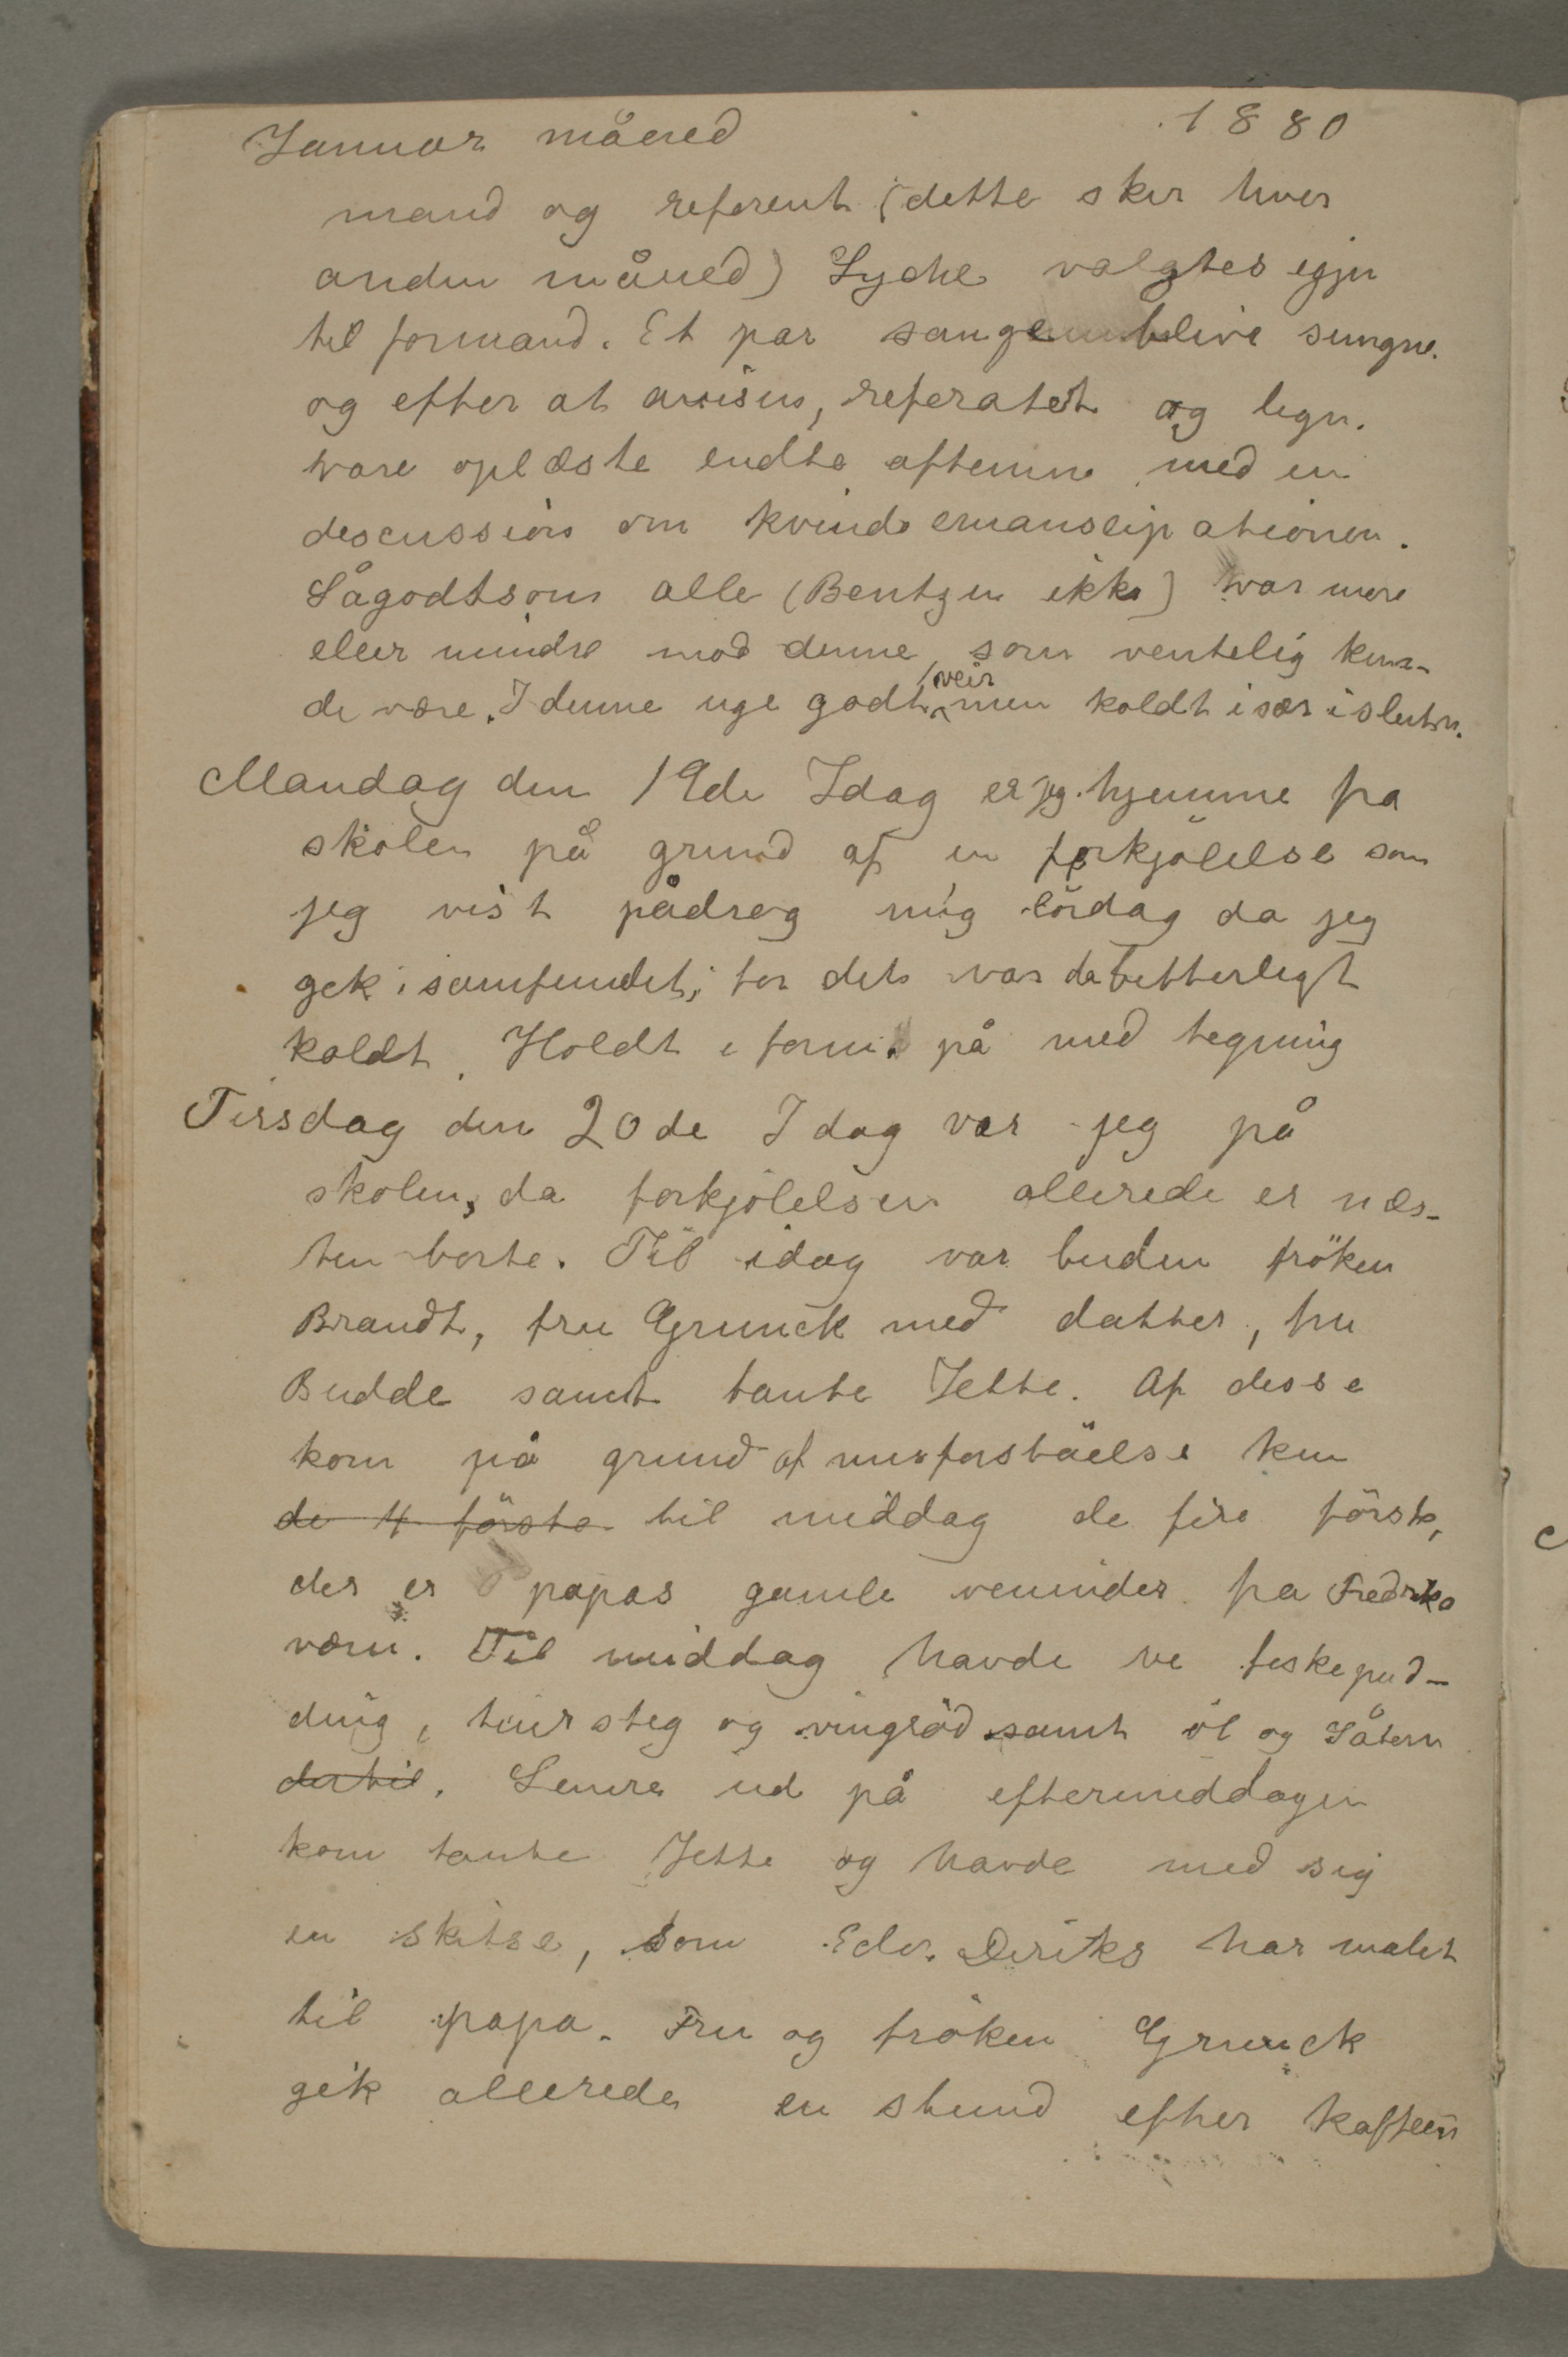 Januar måned 1880
mand og referent (dette sker hver
anden måned) Lyche valgtes igjen
til formand. Et par sange blive sungne.
og efter at avisen, referatet og legn.
vare oplæste endte aftenen med en
descussion om kvindeemanscipationen.
Sågodtsom alle (Bentzen ikke) var mere
eller mindre mod denne, som ventelig kun-
de være. I denne uge godt veir men koldt især i slutn.
Mandag den 19de Idag er jeg hjemme fra
skolen på grund af en forkjölelse som
jeg vist pådrog mig lördag da jeg
gek i samfundet; for det var da bitterligt
koldt. Holdt i form. på med tegning
Tirsdag den 20de Idag var jeg på
skolen, da forkjölelsen allerede er næs-
ten borte. Til idag var buden fröken
Brandt, fru Grunck med datter, fru
Budde samt tante Jette. Af disse
kom på grund af misforståelse kun
de 4 förste til middag de fire förste,
der er papas gamle veninder fra Fredriks
værn. Til middag havde vi fiskepud-
ding, dyrsteg og vingröd samt öl og Såtern
dertil. Senere ud på eftermiddagen
kom tante Jette og havde med sig
en skitse, som Edv. Diriks har malet
til papa. Fru og fröken Grunck
gik allerede en stund efter kaffeen